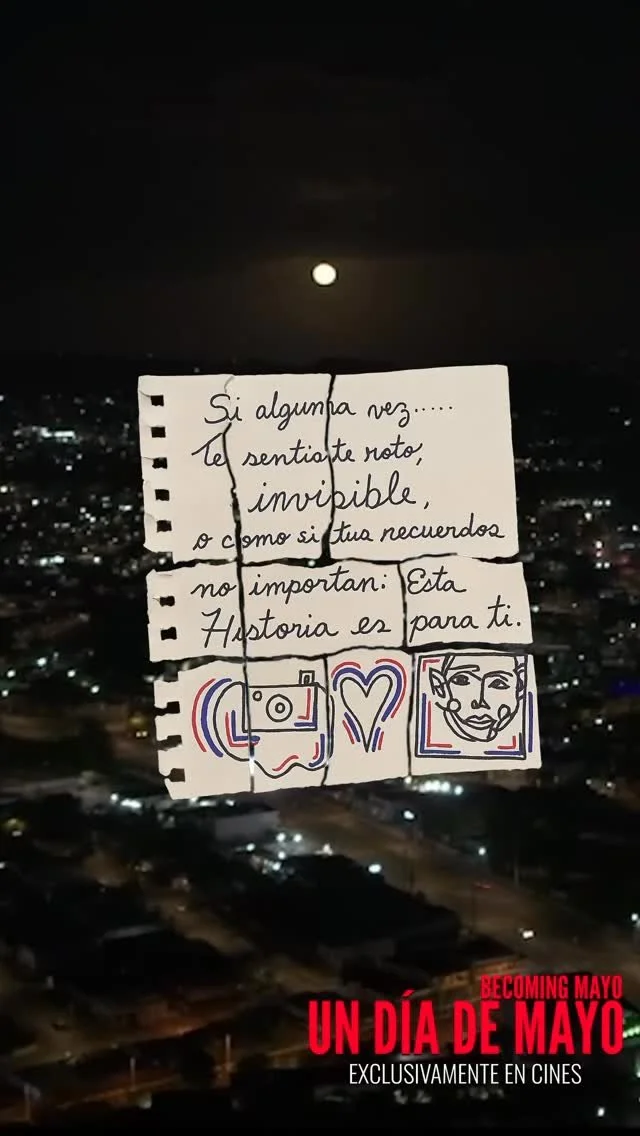 Si alguna vez.....
te sentiste roto,
invisible,
o como si tus recuerdos
no importan: Esta
Historia es para ti.
BECOMING MAYO
UN DÍA DE MAYO
EXCLUSIVAMENTE EN CINES